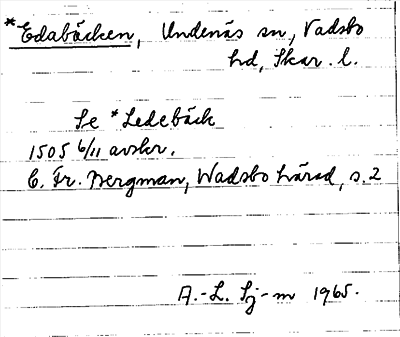 *Edabäcken, Undenäs sn, Vadsbo
hd, Skar. l.
Se *Ledebäck
1505 6/11 avskr.
C. Fr. Bergman, Wadsbo härad, s. 2
A.-L. Sj-m 1965.